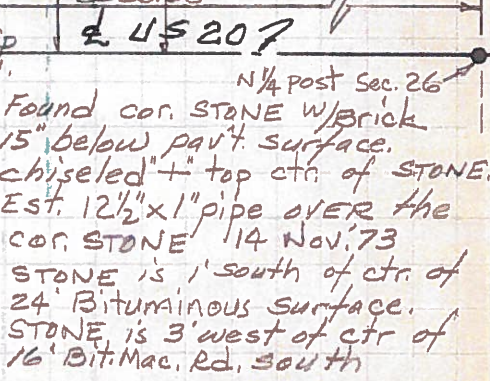 ℄ US 207
N¼ post Sec. 26
Found cor. STONE W/Brick
15" below pav't. surface.
chiseled "+" top ctr. of STONE.
Est. 12½" x 1" pipe OVER the
cor. STONE 14 Nov. '73
STONE is 1' South of ctr. of
24' Bituminous Surface.
STONE is 3' west of ctr of
16' Bit. Mac. Rd. South